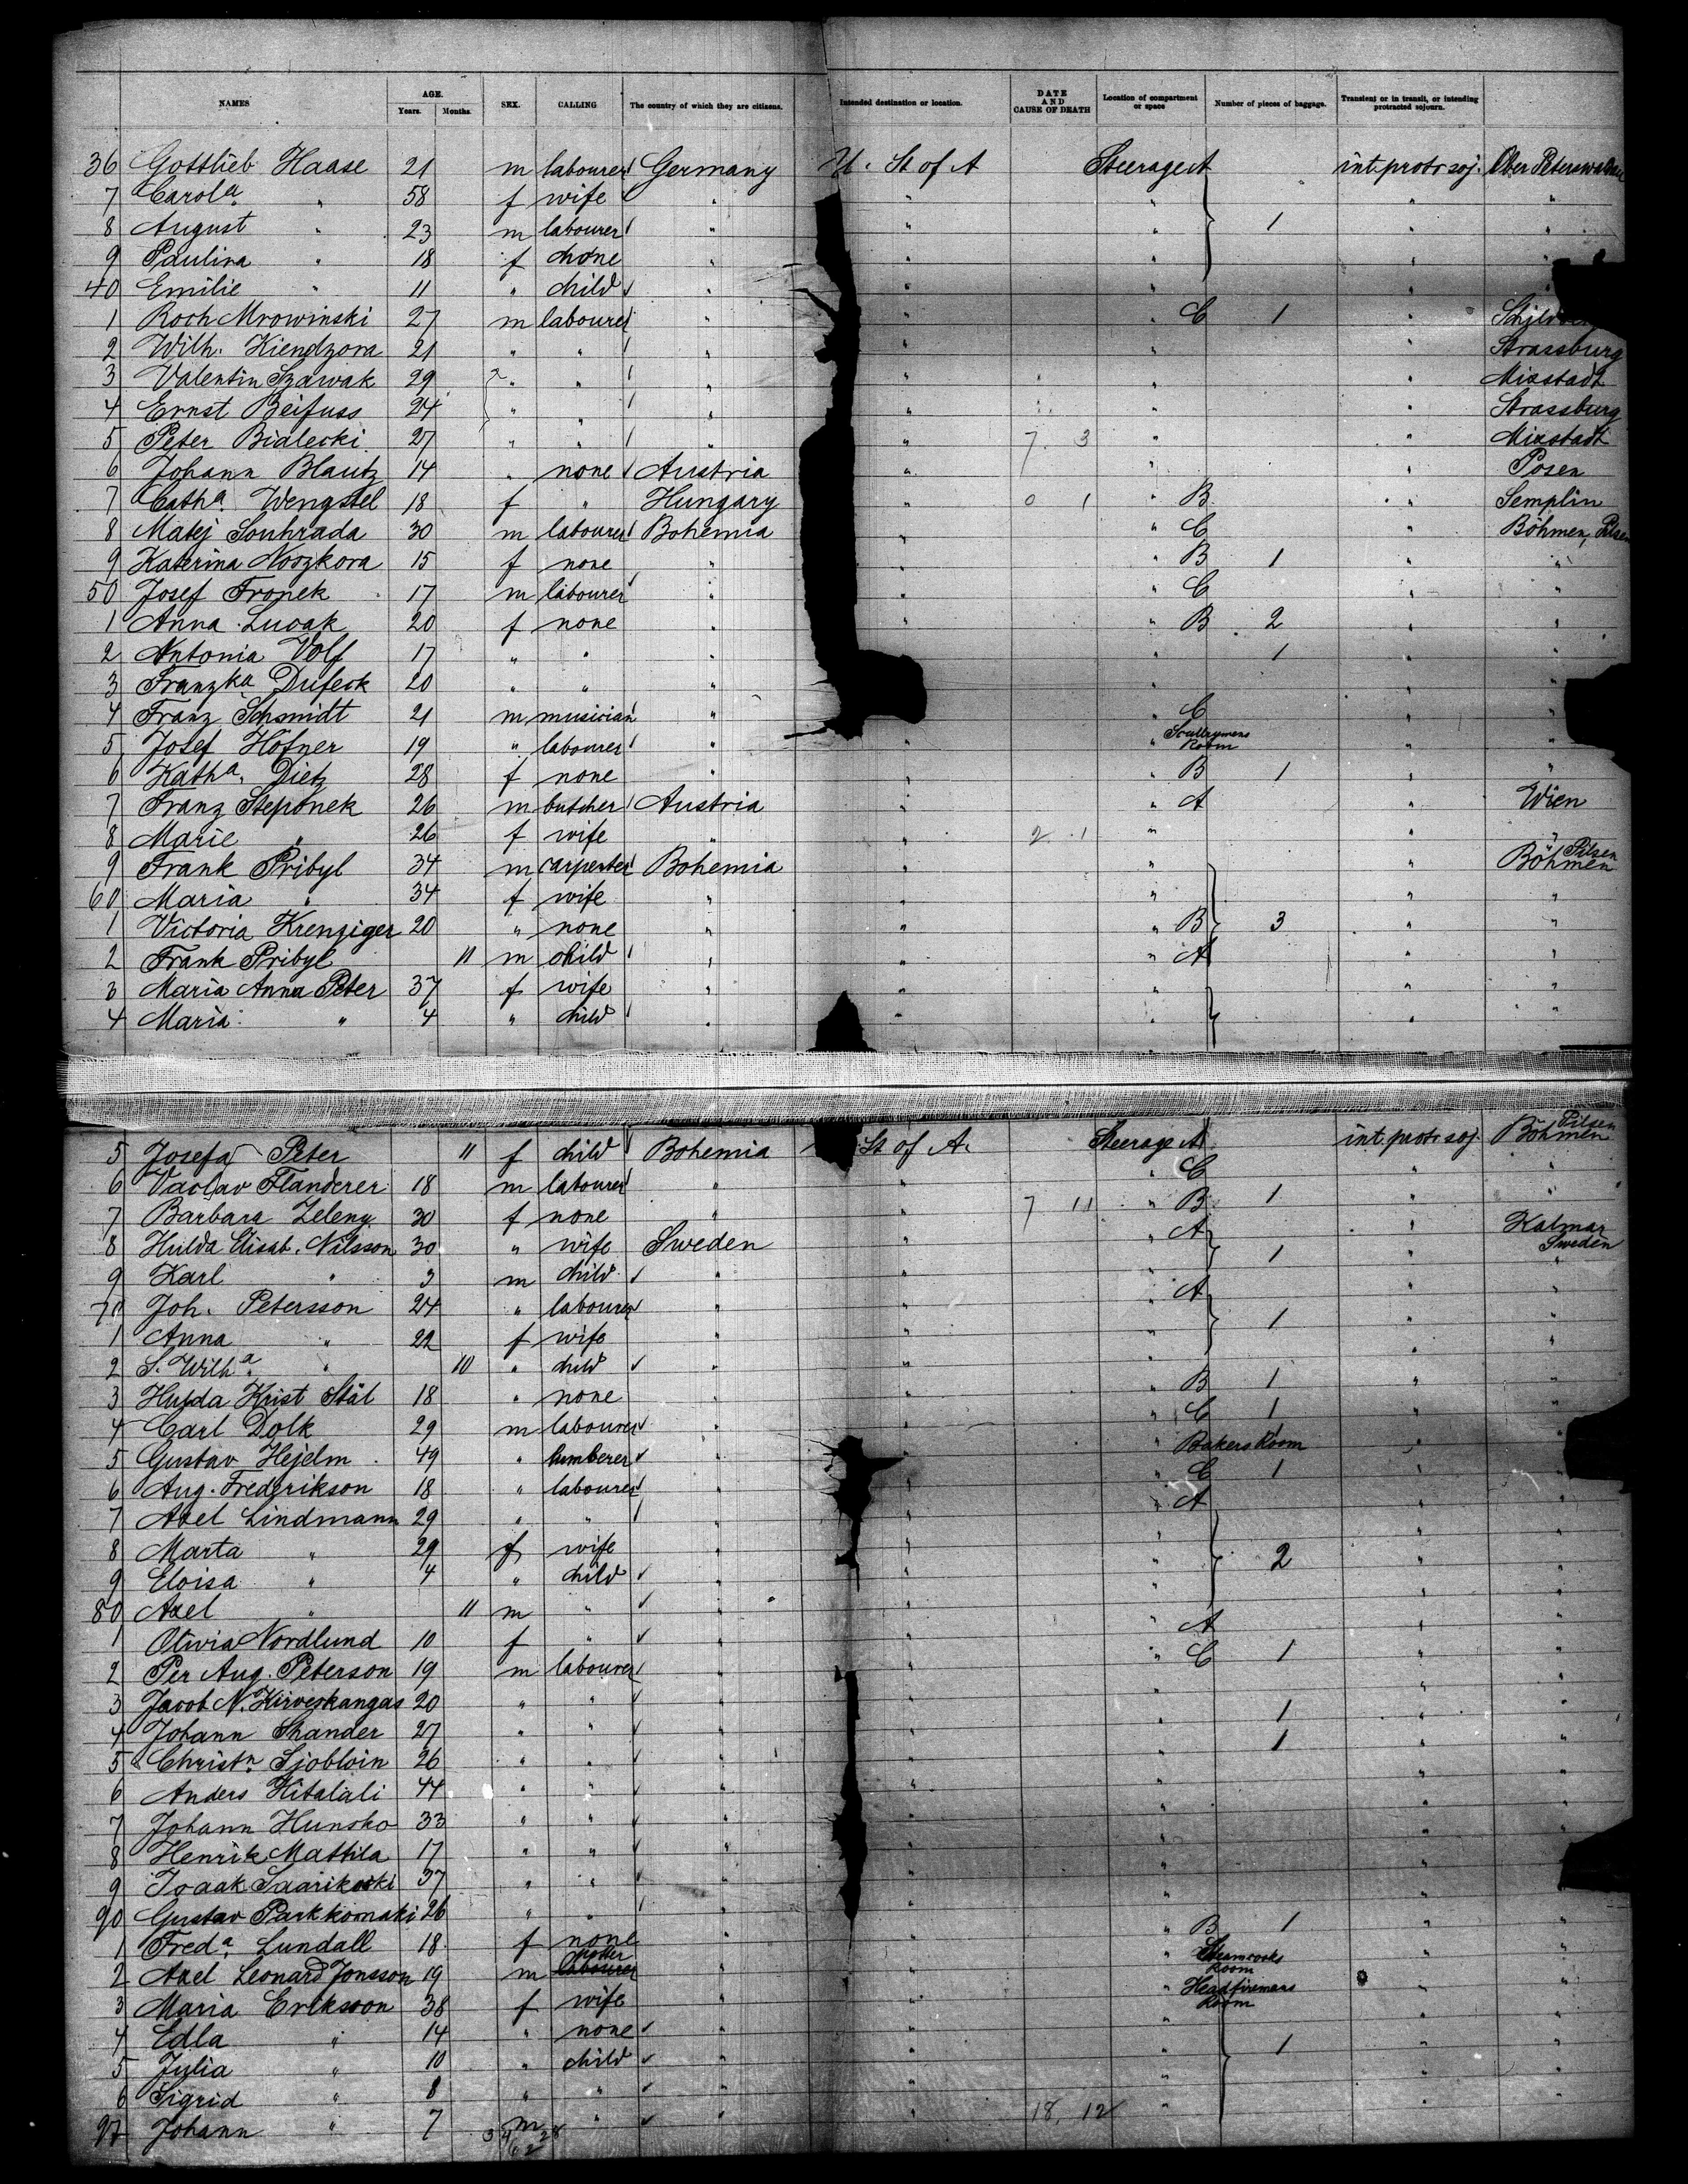 NAMES AGE. Years. Months. SEX. CALLING The country of which they are citizens. Intended destination or location. DATE AND CAUSE OF DEATH Location of compartment or space Number of pieces of baggage. Transient or in transit, or intending protracted sojourn.
36 Gottlieb Haase 21 m labourer Germany U. St of A Steerage A int. protr soj. Ober Peterswaldau
7 Carola " 58 f wife " " " " "
8 August " 23 m labourer " " " 1 " "
9 Paulina " 18 f none " " " " "
40 Emilie " 11 " child " " " "
1 Roch Mrowinski 27 m labourer " " " C 1 "
2 Wilh. Kiendzora 21 " " " " " " Strassburg
3 Valentin Szawak 29 " " " " " " Mixstadt
4 Ernst Beifuss 24 " " " " " " Strassburg
5 Peter Bialecki 27 " " " " 7. 3 " " Mixstadt
6 Johann Blautz 14 " none Austria " " " Posen
7 Catha. Wengstel 18 f " Hungary " 0 1 " B " Semplin
8 Matej Souhrada 30 m labourer Bohemia " " C " Böhmen, Pilsen
9 Katerina Noszkora 15 f none " " " B 1 " "
50 Josef Fronek 17 m labourer " " " C " "
1 Anna Lucak 20 f none " " " B 2 " "
2 Antonia Volf 17 " " " " 1 " "
3 Franzka Dufeck 20 " " " " " "
4 Franz Schmidt 21 m musician " " C " "
5 Josef Höfner 19 " labourer " " " Scullerymens Room " "
6 Katha. Dietz 28 f none " " " B 1 " "
7 Franz Steponek 26 m butcher Austria " " A " Wien
8 Marie " 26 f wife " " 2 1 " " "
9 Frank Pribyl 34 m carpenter Bohemia " " " Böhmen Pilsen
60 Maria " 34 f wife " " " " "
1 Victoria Krenziger 20 " none " " " B 3 " "
2 Frank Pribyl 11 m child " " " A " "
3 Maria Anna Peter 37 f wife " " " " "
4 Maria " 4 " child " " " " "
5 Josefa Peter 11 f child Bohemia St of A. Steerage A int. protr soj. Böhmen Pilsen
6 Vaclav Flanderer 18 m labourer " " " C " "
7 Barbara Zeleny 30 f none " " 7 11 " B 1 " "
8 Hulda Elisab. Nilsson 30 " wife Sweden " " A " Kalmar Sweden
9 Karl " 3 m child " " 1 " "
70 Joh. Petersson 24 " labourer " " " A " "
1 Anna " 22 f wife " " " 1 " "
2 S. Wilha. " 10 " child " " " " "
3 Hulda Krist Stål 18 " none " " " B 1 " "
4 Carl Dolk 29 m labourer " " " C 1 " "
5 Gustav Hejelm 49 " lumberer " " " Bakers Room " "
6 Aug. Fredrikson 18 " labourer " " " C 1 "
7 Axel Lindmann 29 " " " " " A " "
8 Marta " 29 f wife " " " 2 " "
9 Eloisa " 4 " child " " " " "
80 Axel " 11 m " " " " " "
1 Olivia Nordlund 10 f " " " " A " "
2 Per Aug. Peterson 19 m labourer " " " C 1 " "
3 Jacob N. Kirveskangas 20 " " " " " " "
4 Johann Shander 27 " " " " " 1 " "
5 Christn. Sjobloin 26 " " " " " 1 " "
6 Anders Hitalali 44 " " " " " " "
7 Johann Hunsko 33 " " " " " " "
8 Henrik Mattila 17 " " " " " " "
9 Isaak Saarikoski 37 " " " " " " "
90 Gustav Parkkomaki 26 " " " " " " "
1 Freda. Lundall 18 f none " " " B 1 " "
2 Axel Leonard Jonsson 19 m labourer " " " Steamcooks Room " "
3 Maria Eriksson 38 f wife " " " Headfiremens Room "
4 Edla " 14 " none " " " " "
5 Julia " 10 " child " " " 1 " "
6 Sigrid " 8 " " " " " " "
97 Johann " 7 m " " " 18. 12 " " "